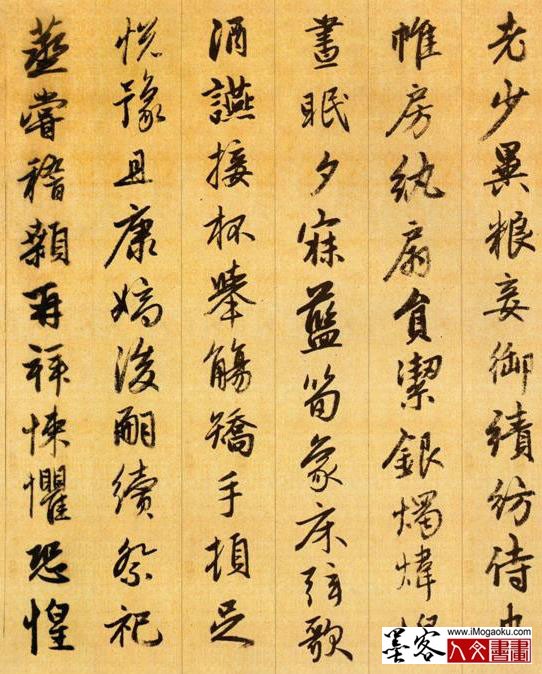 老少異粮妾御績紡侍巾
帷房紈扇員潔銀燭煒煌
晝眠夕寐藍筍象床弦歌
酒讌接杯舉觴矯手頓足
悅豫且康嫡後嗣續祭祀
蒸嘗稽顙再拜悚懼恐惶
墨客
www.iMogaoku.com
人文書畫